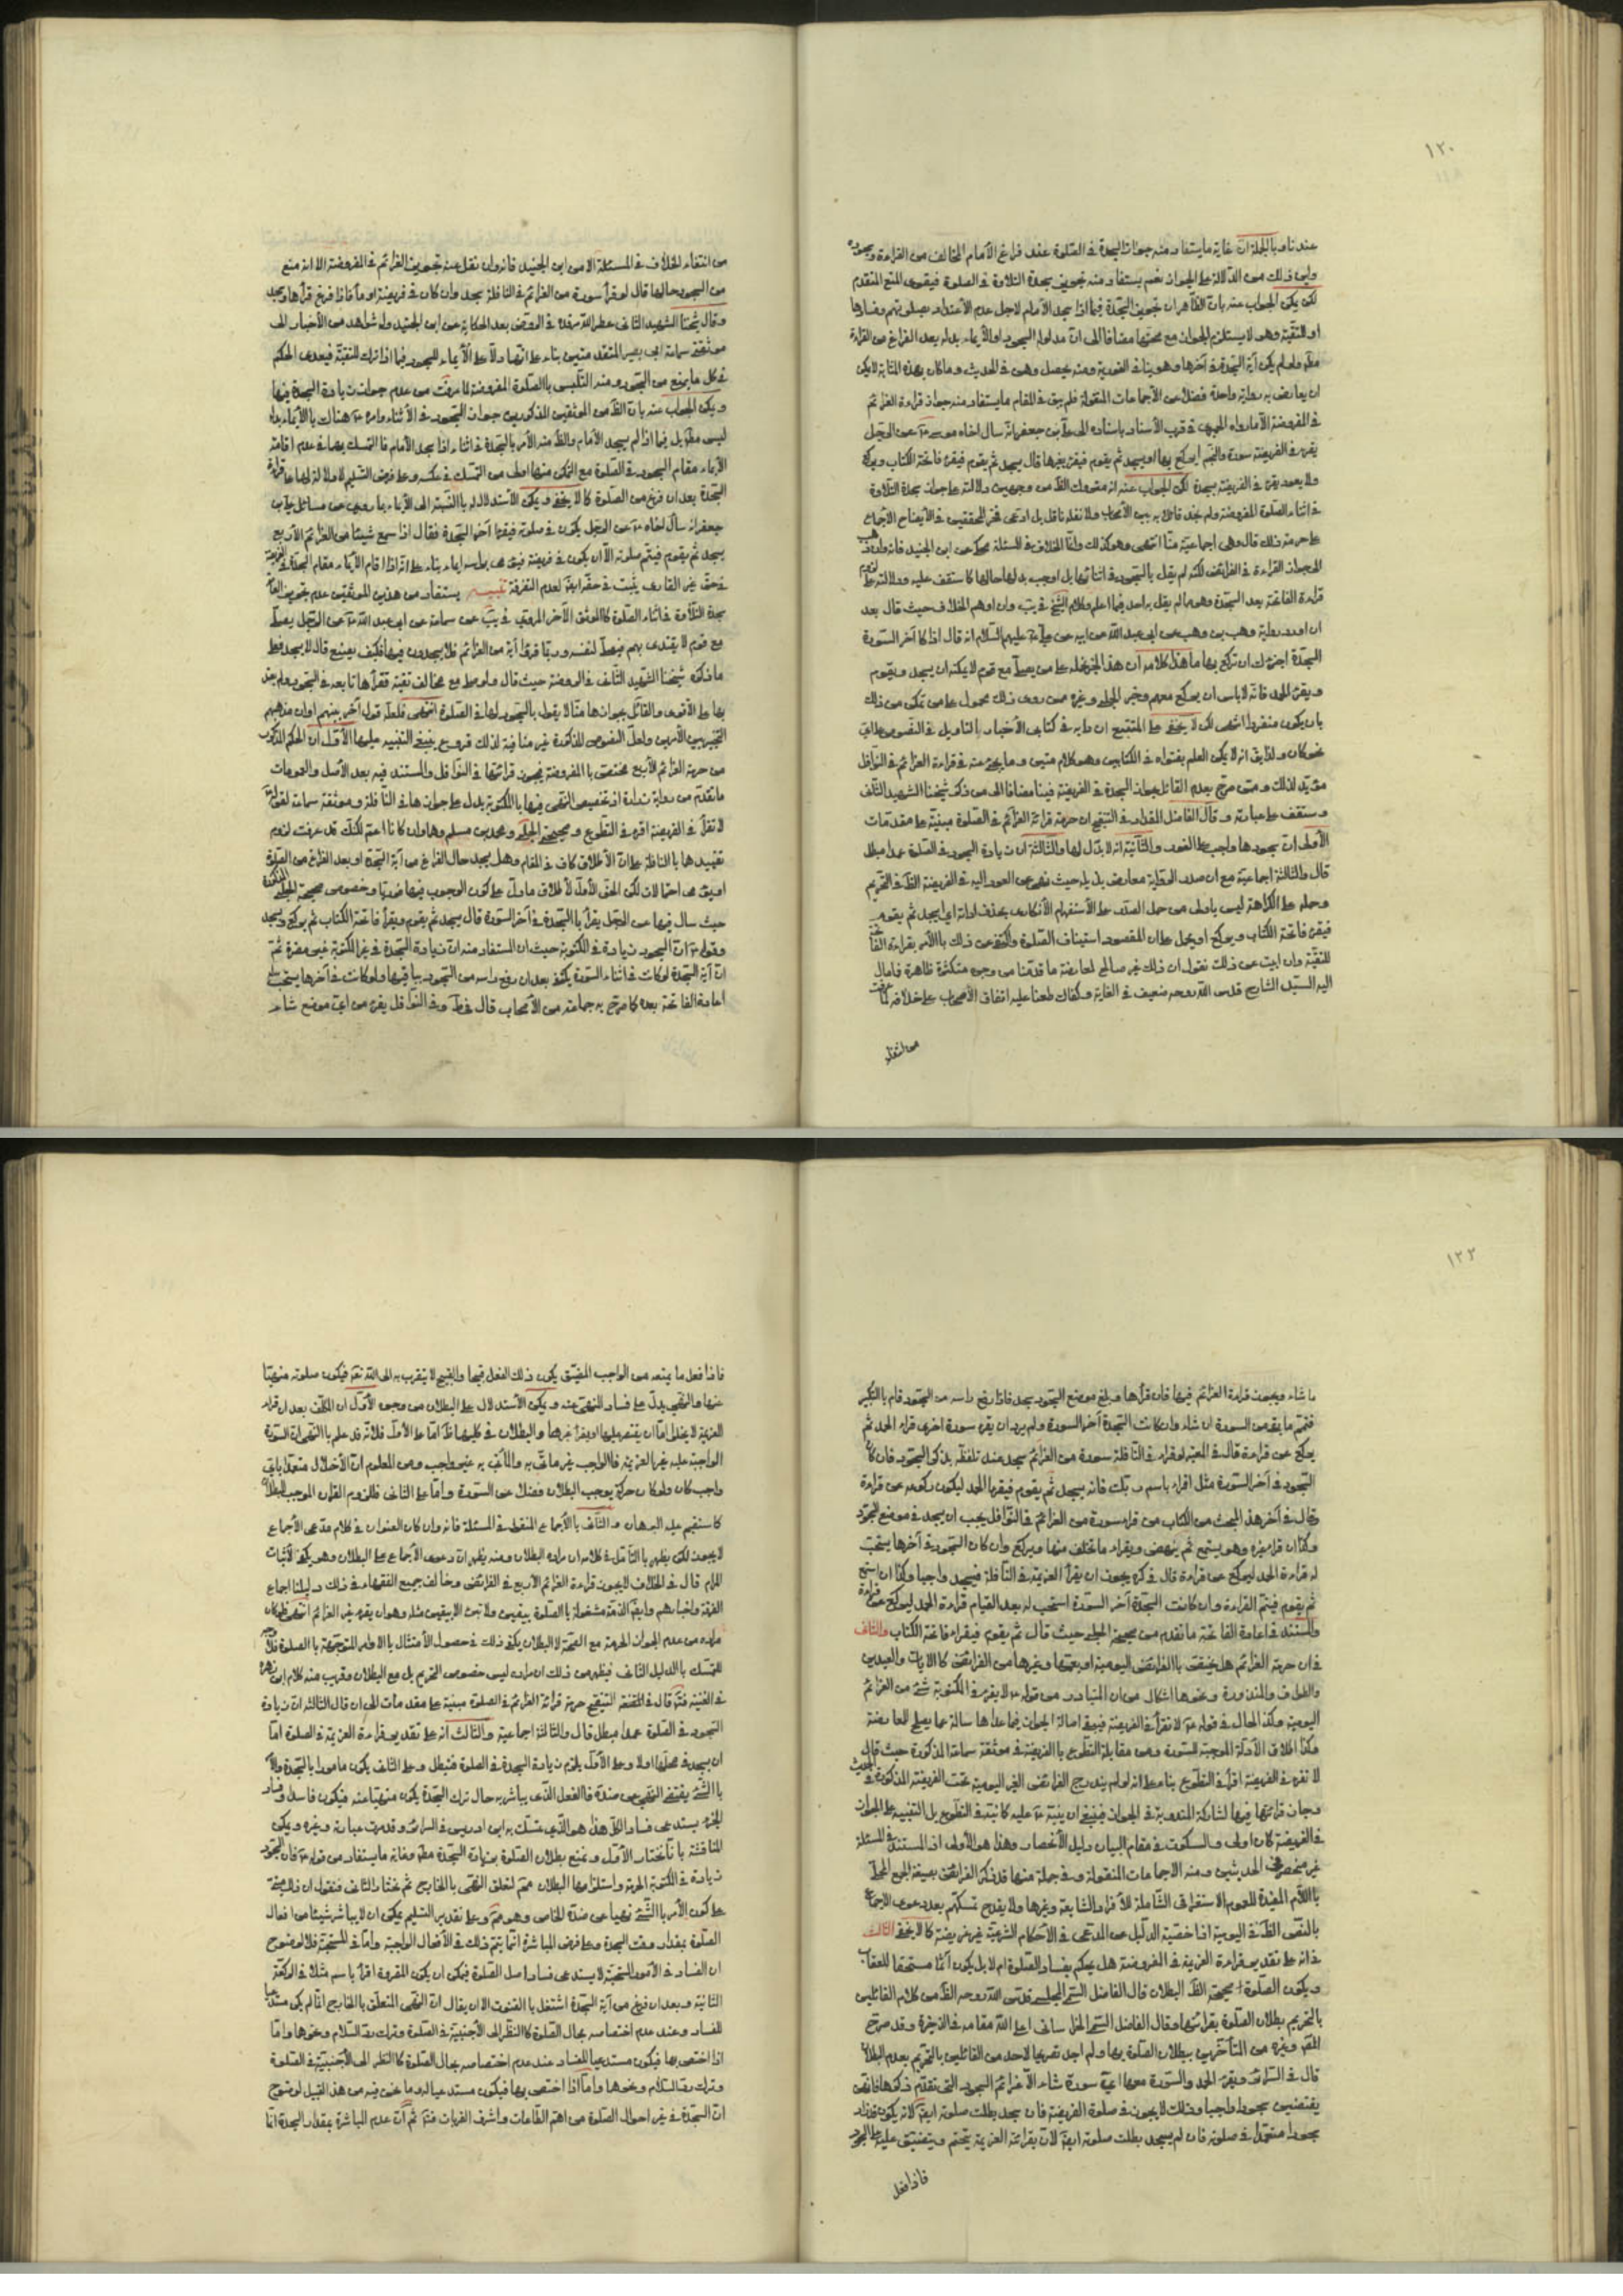 ١٢٠
عند ناو بالجملة ان غاية ما يستفاد منه جواز السجدة في الصلوة عند فراغ الأمام المخالف من القراءة وسجوده
واين ذلك من الدلالة على الجواز نعم يستفاد منه تجويز سجدة التلاوة في الصلوة فيقوى المنع المتقدم
لكن يمكن الجواب عنه بان الظاهر ان تجويز السجدة فيما اذا سجد الأمام لاجل عدم الأعتداد بصلوتهم وفسادها
او للتقية وهو لا يستلزم الجواز مع صحتها مضافا الى ان مدلوله السجود او الأيماء بدله بعد الفراغ من القراءة
ان يعارض به رواية واحدة فضلا عن الأجماعات المنقولة فلم يبق في المقام ما يستفاد منه جواز قراءة العزائم
في الفريضة الأ ما رواه الحميرى في قرب الأسناد باسناده الى على بن جعفر انه سال اخاه موسى ع عن الرجل
يقرء في الفريضة سورة والنجم ايركع بها او يسجد ثم يقوم فيقرء بغيرها قال يسجد ثم يقوم فيقرء فاتحة الكتاب ويركع
ولا يعود يقرء في الفريضة بسجدة لكن الجواب عنه انه متروك الظ من وجهين دلالته على جواز سجدة التلاوة
في اثناء الصلوة المفروضة ولم نجد قائلا به بين الأصحاب ولا نقله ناقل بل ادعى فخر المحققين في الأيضاح الأجماع
على حرمة ذلك قال وهى اجماعية منا انتهى وهو كذلك واما الخلاف في المسئلة محكى عن ابن الجنيد فانه وان ذهب
الى جواز القراءة في الفرائض لكنه لم يقل بالسجود في اثنائها بل اوجب بدلها حالها كما ستقف عليه ودلالته على لزوم
قراءة الفاتحة بعد السجدة وهو مما لم يقل به احد فيما اعلم وكلام الشيخ في يب وان اوهم الخلاف حيث قال بعد
ان اورد رواية وهب بن وهب عن ابى عبد الله عن ابيه عن على ع عليهم السلام انه قال اذا كان آخر السورة
السجدة اجزءك ان تركع بها ما هذا كلامه ان هذا الخبر نحمله على من يصلى مع قوم لا يمكنه ان يسجد ويقوم
ويقرء الحمد فانه لا باس ان يركع معهم وخبر الحلبى وغيره ممن روى ذلك محمول على من تمكن من ذلك
بان يكون منفردا انتهى لكن لا يخفى على المتتبع ان دابه في كتابى الأخبار التاويل في النصوص
نحو كان ولذا يق انه لا يمكن العلم بفتواه في الكتابين وهو كلام متين وما يجئ منه في قراءة العزائم في النوافل
مؤيد لذلك ومتى صرح بعدم القائل بجواز السجدة في الفريضة فينا مضافا الى من ذكر شيخنا الشهيد الثانى
وستقف على عبارته وقال الفاضل المقداد في التنقيح ان حرمة قرائة العزائم في الصلوة مبنية على مقدمات
الأولى ان سجودها واجب على الفور والثانية انه لا بدل لها والثالثة ان زيادة السجود في الصلوة عمدا مبطل
قال والثالثة اجماعية مع ان صدر الرواية معارض بذيله حيث نهى عن العود اليه في الفريضة الظ في التحريم
وحمله على الكراهة ليس باولى من حمل الصدر على الأستفهام الأنكارى بحذف اداته اى ايسجد ثم يقوم
فيقرء فاتحة الكتاب ويركع او يحمل على ان المقصود استيناف الصلوة واكتفى عن ذلك بالأمر بقراءة الفاتحة
للتقية وان ابيت عن ذلك نقول ان ذلك غير صالح لمعارضة ما قدمنا من وجوه متكثرة ظاهرة فما مال
اليه السيد الشارح قدس الله روحه ضعيف في الغاية وكفاك طعنا عليه اتفاق الأصحاب على خلافه لما عرفت
من انتفاء
من انتفاء الخلاف في المسئلة الا من ابن الجنيد فانه وان نقل عنه تجويز العزائم في المفروضة الا انه منع
من السجود حالها قال لو قرأ سورة من العزائم في النافلة سجد وان كان في فريضة اومأ فاذا فرغ قرأها وسجد
وقال شيخنا الشهيد الثانى عطر الله مرقده في الروض بعد الحكاية عن ابن الجنيد وله شواهد من الأخبار
في كل ما يمنع من السجود ومنه التلبس بالصلوة المفروضة لما عرفت من عدم جواز زيادة السجدة فيها
ويمكن الجواب عنه بان الظ من الموثقين المذكورين جواز السجود في الأثناء وامره ع هناك بالأيماء بدله
ليس مط بل فيما اذا لم يسجد الأمام والظ منه الأمر بالسجدة في اثنائه اذا سجد الأمام فالتمسك بهما في عدم اقامة
الأيماء مقام السجود في الصلوة مع التمكن منها اولى من التمسك في عكسه وعلى فرض التسليم لا دلالة لهما على قراءة
السجدة بعد ان فرغ من الصلوة كما لا يخفى ويمكن الأستدلال له بالنسبة الى الأيماء بما روى عن مسائل على بن
جعفر انه سأل اخاه ع عن الرجل يكون في صلوة فيقرء آخر السجدة فقال اذا سمع شيئا من العزائم الأربع
يسجد ثم يقوم فيتم صلوته الا ان يكون في فريضة فيؤمى برأسه ايماء
في حق غير القارى يثبت في حقه ايضا لعدم التفرقة تنبيه يستفاد من هذين الموثقين عدم تجويز
سجدة التلاوة في اثناء الصلوة كالموثق الآخر المروى في يب عن سماعة عن ابى عبد الله ع عن الرجل يصلى
مع قوم لا يقتدى بهم فيصلى لنفسه وربما قرؤا آية من العزائم فلا يسجدون فيها فكيف يصنع قال لا يسجد
ما ذكره شيخنا الشهيد الثانى في الروضة حيث قال ولو صلى مع مخالف تقية فقرأها تابعه في السجود ولم يعتد
بها على الأقوى والقائل بجوازها منا لا يقول بالسجود لها في الصلوة انتهى فلعله قول آخر بينهم
من حرمة العزائم الأربع مختص بالمفروضة فيجوز قرائتها في النوافل والمستند فيه بعد الأصل والعمومات
ما تقدم من رواية زرارة اذ تخصيص النهى فيها بالمكتوبة يدل على جوازها في النافلة وموثقة سماعة لقوله
لا تقرأ في الفريضة اقرء في التطوع وصحيحة الحلبى ومحمد بن مسلم وهما وان كانا اعم لكنك قد عرفت لزوم
تقييدها بالنافلة على ان الأطلاق كاف في المقام وهل يسجد حال الفراغ من آية السجدة او بعد الفراغ من الصلوة
حيث سال فيها عن الرجل يقرأ بالسجدة في آخر السورة قال يسجد ثم يقوم ويقرأ فاتحة الكتاب ثم يركع ويسجد
وقوله ع ان السجود زيادة في المكتوبة حيث ان المستفاد منه ان زيادة السجدة في غير المكتوبة غير مضرة ثم
ان آية السجدة لو كانت في اثناء السورة يكتفى بعد ان رفع راسه من السجود بباقيها ولو كانت في آخرها يستحب له
اعادة الفاتحة بعده كما صرح به جماعة من الأصحاب قال في ط وفى النوافل يقرء من اى موضع شاء
١٢٢
ما شاء ويجوز قراءة العزائم فيها فان قرأها وبلغ موضع السجود سجد فاذا رفع راسه من السجود قام بالتكبير
فتمم ما بقى من السورة ان شاء وان كانت السجدة آخر السورة ولم يرد ان يقرء سورة اخرى قراء الحمد ثم
يركع عن قراءة قال في المعتبر لو قراء في النافلة سورة من العزائم سجد عند تلفظه بذكر السجود فان كان
السجود في آخر السورة مثل اقراء باسم ربك فانه يسجد ثم يقوم فيقرء الحمد ليكون ركوعه عن قراءة
وقال في آخر هذا البحث من الكتاب من قراء سورة من العزائم في النوافل يجب ان يسجد في موضع السجود
وكذا ان قراء غيره وهو يستمع ثم ينهض ويقراء ما تخلف منها ويركع وان كان السجود في آخرها يستحب
له قراءة الحمد ليركع عن قراءة قال في كره يجوز ان يقرأ العزيمة في النافلة فيسجد واجبا وكذا ان استمع
ثم يقوم فيتم القراءة وان كانت السجدة آخر السورة استحب له بعد القيام قراءة الحمد ليركع عن قراءة
والمستند في اعادة الفاتحة ما تقدم من صحيحة الحلبى حيث قال ثم يقوم فيقراء فاتحة الكتاب والثانى
في ان حرمة العزائم هل يختص بالفرائض اليومية او يعمها وغيرها من الفرائض كالايات والعيدين
والطواف والمنذورة ونحوها اشكال من ان المتبادر من قوله ع لا يقرء في المكتوبة شئ من العزائم
اليومية وكذا الحال في قوله ع لا تقرأ في الفريضة فيبقى اصالة الجواز فيما عداها سالمة عما يصلح للمعارضة
وكذا اطلاق الأدلة الموجبة للسورة ومن مقابلة التطوع بالفريضة في موثقة سماعة المذكورة حيث قال
لا تقرء في الفريضة اقرأ في التطوع بناء على انه لو لم يندرج الفرائض الغير اليومية تحت الفريضة المذكورة في الحديث
وجاز قرائتها فيها لشاركة المندوبة في الجواز فينبغى ان ينبه ع عليه كما نبه في التطوع بل التنبيه على الجواز
في الفريضة كان اولى والسكوت في مقام البيان دليل الأنحصار وهذا هو الأولى اذ المستند في المسئلة
غير منحصر في الحديثين ومنه الأجماعات المنقولة وفى جملة منها قد ذكر الفرائض بصيغة الجمع المحلى
باللام المفيدة للعموم الأستغراقى الشاملة للأفراد الشايعة وغيرها ولا يقدح تمسكهم بعد دعوى الأجماع
بالنص الظ في اليومية اذ اخصية الدليل عن المدعى في الأحكام الشرعية غير مضرة كما لا يخفى الثالث
في انه على تقدير قراءة العزيمة في المفروضة هل يحكم بفساد الصلوة ام لا بل يكون آثما مستحقا للعقاب
ويكون الصلوة صحيحة الظ البطلان قال الفاضل السمى المجلسى قدس الله روحه الظ من كلام القائلين
بالتحريم بطلان الصلوة بقرائتها وقال الفاضل السمى الخراسانى اعلى الله مقامه في الذخيرة وقد صرح
المص وغيره من المتأخرين ببطلان الصلوة بها ولم اجد تصريحا لاحد من القائلين بالتحريم بعدم البطلان
قال في السرائر ويقرء الحمد والسورة معها اية سورة شاء الأ عزائم السجود التى تقدم ذكرها فانهن
يقتضين سجودا واجبا وذلك لا يجوز في صلوة الفريضة فان سجد بطلت صلوته ايضا لانه يكون قد زاد
سجودا متعمدا في صلوته فان لم يسجد بطلت صلوته ايضا لأن بقرائته العزيمة يتحتم ويتضيق عليه السجود
فاذا فعل
فاذا فعل ما يمنعه من الواجب المضيق يكون ذلك الفعل قبيحا والقبيح لا يتقرب به الى الله تعه فيكون صلوته منهيا
عنها والنهى يدل على فساد المنهى عنه ويمكن الأستدلال على البطلان من وجوه الأول ان المكلف بعد ان قراء
العزيمة لا يخلو اما ان يقتصر عليها او يقرء غيرها والبطلان في كليهما ظ اما على الأول فلانه قد علم بالنهى ان السورة
الواجبة عليه غير العزيمة فالواجب غير ماتى به والماتى به غير واجب ومن المعلوم ان الأخلال متعمدا باى
واجب كان ولو كان حركة يوجب البطلان فضلا عن السورة واما على الثانى فللزوم القران الموجب للبطلان
كما سنقيم عليه البرهان والثانى بالأجماع المنقول في المسئلة فانه وان كان العنوان في كلام مدعى الأجماع
لا يجوز لكن يظهر بالتأمل في كلامه ان مراده البطلان ومنه يظهر ان دعوى الأجماع على البطلان وهو يكفى لأثبات
المرام قال في الخلاف لا يجوز قراءة العزائم الأربع في الفرائض وخالف جميع الفقهاء في ذلك دليلنا اجماع
الفرقة واخبارهم وايضا الذمة مشغولة بالصلوة بيقين ولا تبرء الا بيقين مثله وهو ان يقرء غير العزائم انتهى فلو كان
مراده من عدم الجواز الحرمة مع الصحة لا البطلان يكفى ذلك في حصول الأمتثال بالأوامر المتوجهة بالصلوة فلا وجه
للتمسك بالدليل الثانى فيظهر من ذلك ان مراده ليس خصوص التحريم بل مع البطلان وقريب منه كلام ابن زهرة
في الغنية قال في التنقيح حرمة قرائة العزائم في الصلوة مبنية على مقدمات الى ان قال الثالثة ان زيادة
السجود في الصلوة عمدا مبطل قال والثالثة اجماعية والثالث انه على تقدير قراءة العزيمة في الصلوة اما
ان يسجد في محلها او لا وعلى الأول يلزم زيادة السجدة في الصلوة فتبطل وعلى الثانى يكون مامورا بالسجدة والأمر
بالشئ يقتضى النهى عن ضده فالفعل الذى يباشر به حال ترك السجدة يكون منهيا عنه فيكون فاسدا وفساد
الجزء يستدعى فساد الكل هذا هو الذى تمسك به ابن ادريس في السرائر وقد مرت عبارته وغيره ويمكن
المناقشة بانا نختار الأول ونمنع بطلان الصلوة بزيادة السجدة مط وغاية ما يستفاد من قوله ع فان السجود
زيادة في المكتوبة الحرمة واستلزامها البطلان مم لتعلق النهى بالخارج ثم نختار الثانى فنقول ان
على كون الأمر بالشئ نهيا عن ضده الخاص وهو مم وعلى تقدير التسليم يمكن ان لا يباشر شيئا من افعال
الصلوة بمقدار وقت السجدة وعلى فرض المباشرة انما يتم ذلك في الأفعال الواجبة واما في المستحبة فلا لوضوح
ان الفساد في الأمور المستحبة لا يستدعى فساد اصل الصلوة فيمكن ان يكون المقروء اقرأ باسم مثلا في الركعة
الثانية وبعد ان فرغ من آية السجدة اشتغل بالقنوت الا ان يقال ان النهى المتعلق بالخارج انما لم يكن مستدعيا
للفساد وعند عدم اختصاصه بحال الصلوة كالنظر الى الأجنبية في الصلوة وترك رد السلام ونحوها واما
اذا اختص بها فيكون مستدعيا للفساد عند عدم اختصاصه بحال الصلوة كالنظر الى الأجنبية في الصلوة
وترك رد السلام ونحوها واما اذا اختص بها فيكون مستدعيا له وما نحن فيه من هذا القبيل لوضوح
ان السجدة في غير احوال الصلوة من اهم الطاعات واشرف القربات فتم ثم ان عدم المباشرة بمقدار السجدة انما